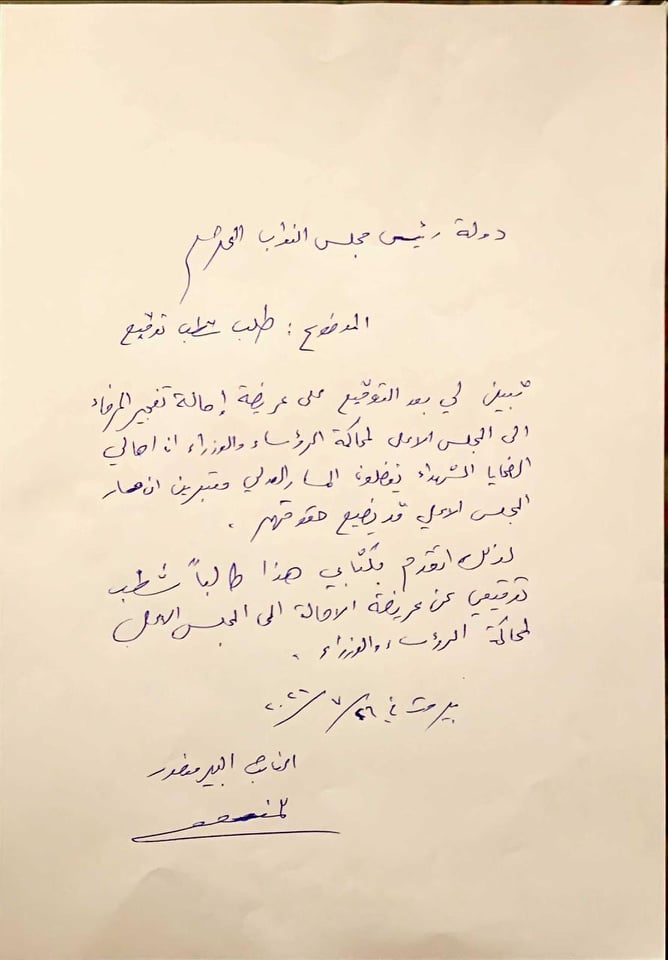 دولة رئيس مجلس النواب المحترم
الموضوع : طلب شطب توقيع
تبين لي بعد التوقيع على عريضة إحالة تفجير المرفاء
الى المجلس الاعلى لمحاكمة الرؤساء والوزراء ان اهالي
الضحايا الشهداء يفضلون المسار العدلي معتبرين ان مسار
المجلس الاعلى قد يضيع حقوقهم .
لذلك اتقدم بكتابي هذا طالباً شطب
توقيعي عن عريضة الاحالة الى المجلس الاعلى
لمحاكمة الرؤساء والوزراء .
بيروت في ٢٦/٧/٢٠٢١
النائب البير منصور